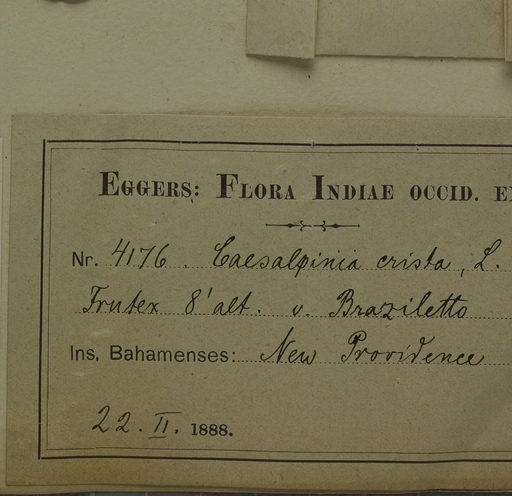 EGGERS: FLORA INDIAE OCCID. E
Nr. 4176. Caesalpinia crista, L.
Frutex 8' alt. v. Braziletto
Ins. Bahamenses: New Providence
22. II. 1888.